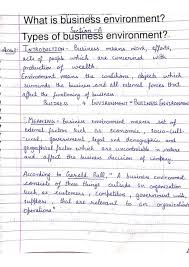 What is business environment?
Section-A
Types of business environment?
INTRODUCTION: Business means work, efforts,
acts of people which are concerned with
production of wealth
Environment means the conditions, objects which
surrounds the business and all external forces that
affect the functioning of business
BUSINESS & ENVIRONMENT = BUSINESS ENVIRONMENT
MEANING: Business environment means set of
external factors such as economic, socio-cult-
ural, government, legal and demographic and
geographical factors which are uncontrollable in nature
and affect the business decision of
According to Gerald Bell, "A business environment
consists of those things outside an organisation
such as customers, competitors, government unit,
suppliers that are relevant to an organization
operations"